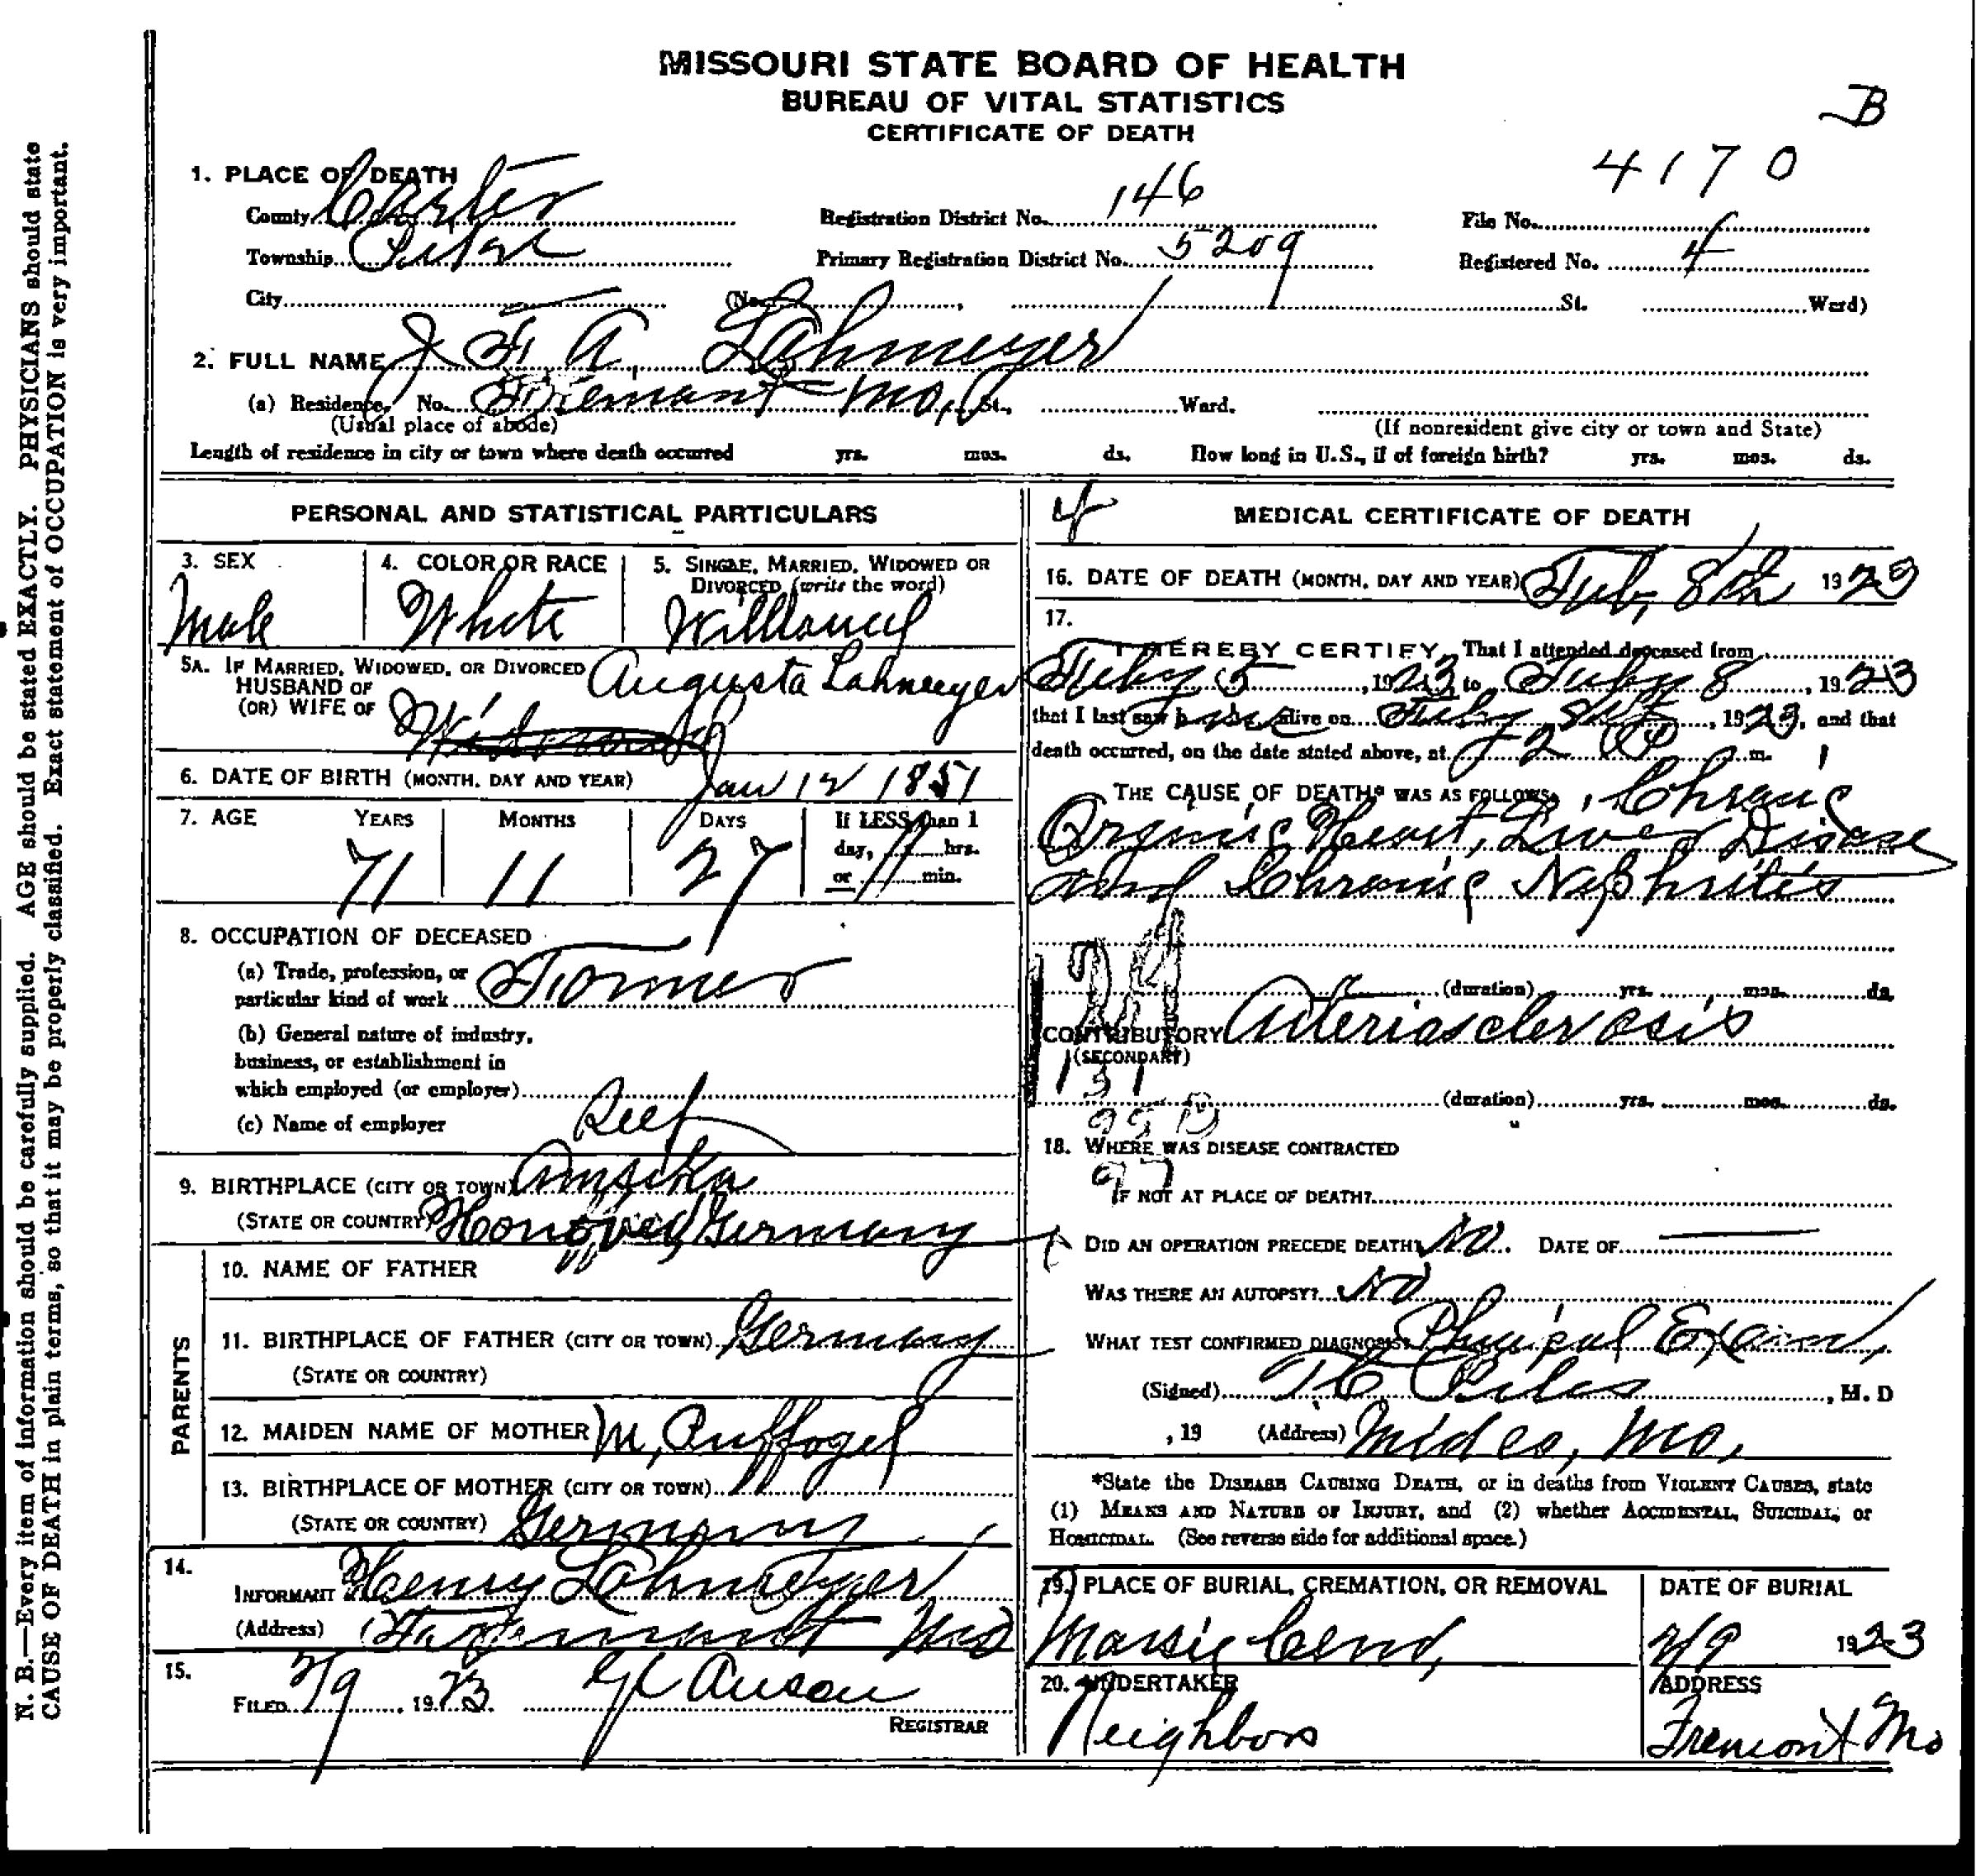 MISSOURI STATE BOARD OF HEALTH
BUREAU OF VITAL STATISTICS
CERTIFICATE OF DEATH
B
4170
1. PLACE OF DEATH
County Carter Registration District No. 146 File No.
Township Primary Registration District No. 5209 Registered No. 4
City (No. , St. Ward)
2. FULL NAME J F. A. Lahmeyer
(a) Residence, No. Fremont Mo, St., Ward.
(Usual place of abode) (If nonresident give city or town and State)
Length of residence in city or town where death occurred yrs. mos. ds. How long in U.S., if of foreign birth? yrs. mos. ds.
PERSONAL AND STATISTICAL PARTICULARS
3. SEX 4. COLOR OR RACE 5. SINGLE, MARRIED, WIDOWED OR
DIVORCED (write the word)
Male White
5A. IF MARRIED, WIDOWED, OR DIVORCED Augusta Lahmeyer
HUSBAND OF
(OR) WIFE OF
6. DATE OF BIRTH (MONTH, DAY AND YEAR) Jan 12 1851
7. AGE YEARS MONTHS DAYS If LESS than 1
day, hrs.
or min.
71 11 27
8. OCCUPATION OF DECEASED
(a) Trade, profession, or
particular kind of work Farmer
(b) General nature of industry,
business, or establishment in
which employed (or employer)
(c) Name of employer Self
9. BIRTHPLACE (CITY OR TOWN)
(STATE OR COUNTRY) Germany
PARENTS
10. NAME OF FATHER
11. BIRTHPLACE OF FATHER (CITY OR TOWN) Germany
(STATE OR COUNTRY)
12. MAIDEN NAME OF MOTHER M,
13. BIRTHPLACE OF MOTHER (CITY OR TOWN)
(STATE OR COUNTRY) Germany
14.
INFORMANT Henry Lahmeyer
(Address) Fremont Mo
15.
FILED 2/9 1923
REGISTRAR
4
MEDICAL CERTIFICATE OF DEATH
16. DATE OF DEATH (MONTH, DAY AND YEAR) Feb, 8th 1923
17.
I HEREBY CERTIFY, That I attended deceased from
Feby 5, 1923, to Feby 8, 1923
that I last saw h alive on Feby 8th, 1923, and that
death occurred, on the date stated above, at m.
THE CAUSE OF DEATH* WAS AS FOLLOWS: Chronic
Organic Heart, Liver Disease
and Chronic Nephritis
(duration) yrs. mos. ds.
CONTRIBUTORY Arteriosclerosis
(SECONDARY)
131
(duration) yrs. mos. ds.
18. WHERE WAS DISEASE CONTRACTED
97
IF NOT AT PLACE OF DEATH?
DID AN OPERATION PRECEDE DEATH? No. DATE OF
WAS THERE AN AUTOPSY? No
WHAT TEST CONFIRMED DIAGNOSIS? Physical Exam,
(Signed) , M. D
, 19 (Address) Midco, Mo,
*State the DISEASE CAUSING DEATH, or in deaths from VIOLENT CAUSES, state
(1) MEANS AND NATURE OF INJURY, and (2) whether ACCIDENTAL, SUICIDAL, or
HOMICIDAL. (See reverse side for additional space.)
19. PLACE OF BURIAL, CREMATION, OR REMOVAL DATE OF BURIAL
Cem, 2/9 1923
20. UNDERTAKER ADDRESS
Neighbors Fremont Mo
N. B.—Every item of information should be carefully supplied. AGE should be stated EXACTLY. PHYSICIANS should state
CAUSE OF DEATH in plain terms, so that it may be properly classified. Exact statement of OCCUPATION is very important.